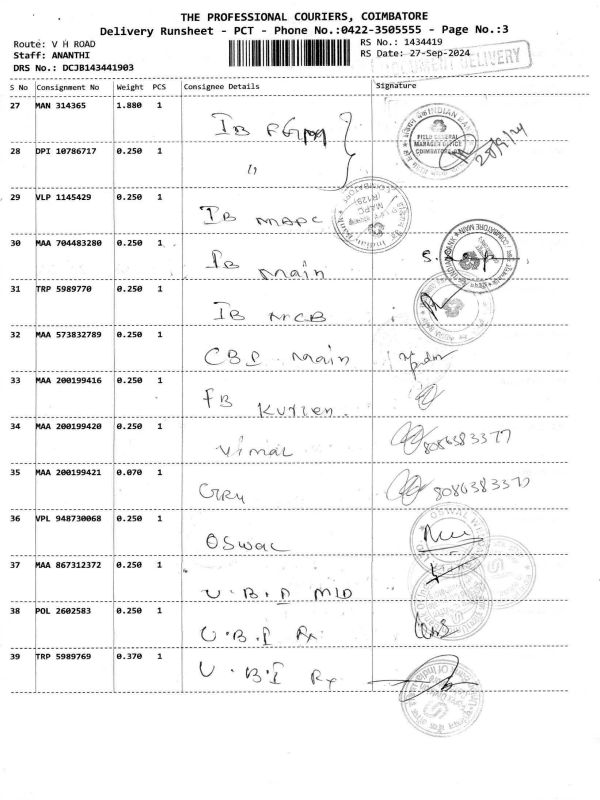 THE PROFESSIONAL COURIERS, COIMBATORE
Delivery Runsheet - PCT - Phone No.:0422-3505555 - Page No.:3
Route: V H ROAD
RS No.: 1434419
Staff: ANANTHI
RS Date: 27-Sep-2024
DRS No.: DCJB143441903
DELIVERY
S No Consignment No Weight PCS Consignee Details Signature
27 MAN 314365 1.880 1 IB
FIELD GENERAL MANAGER OFFICE COIMBATORE
28 DPI 10786717 0.250 1 "
29 VLP 1145429 0.250 1 IB MAPC
30 MAA 704483280 0.250 1 IB Main
31 TRP 5989770 0.250 1 IB MCB
32 MAA 573832789 0.250 1 CBI Main
33 MAA 200199416 0.250 1 FB Kurien.
34 MAA 200199420 0.250 1 Vimal 8086383377
35 MAA 200199421 0.070 1 8086383377
36 VPL 948730068 0.250 1 Oswal
37 MAA 867312372 0.250 1 U.B.I MLD
38 POL 2602583 0.250 1 U.B.I Rx
39 TRP 5989769 0.370 1 U.B.I Rx